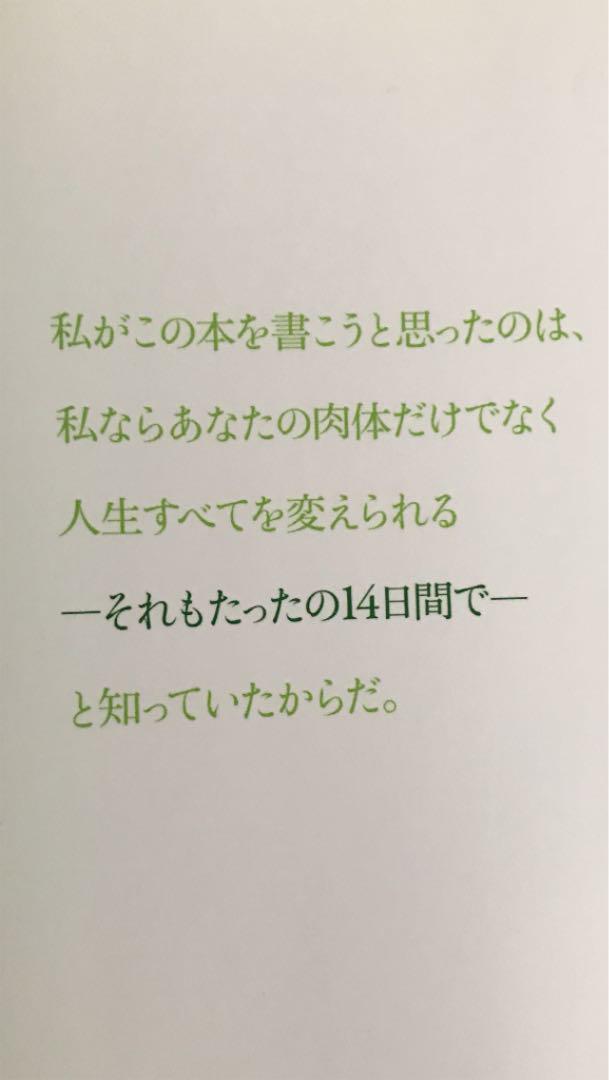 私がこの本を書こうと思ったのは、
私ならあなたの肉体だけでなく
人生すべてを変えられる
―それもたったの14日間で―
と知っていたからだ。